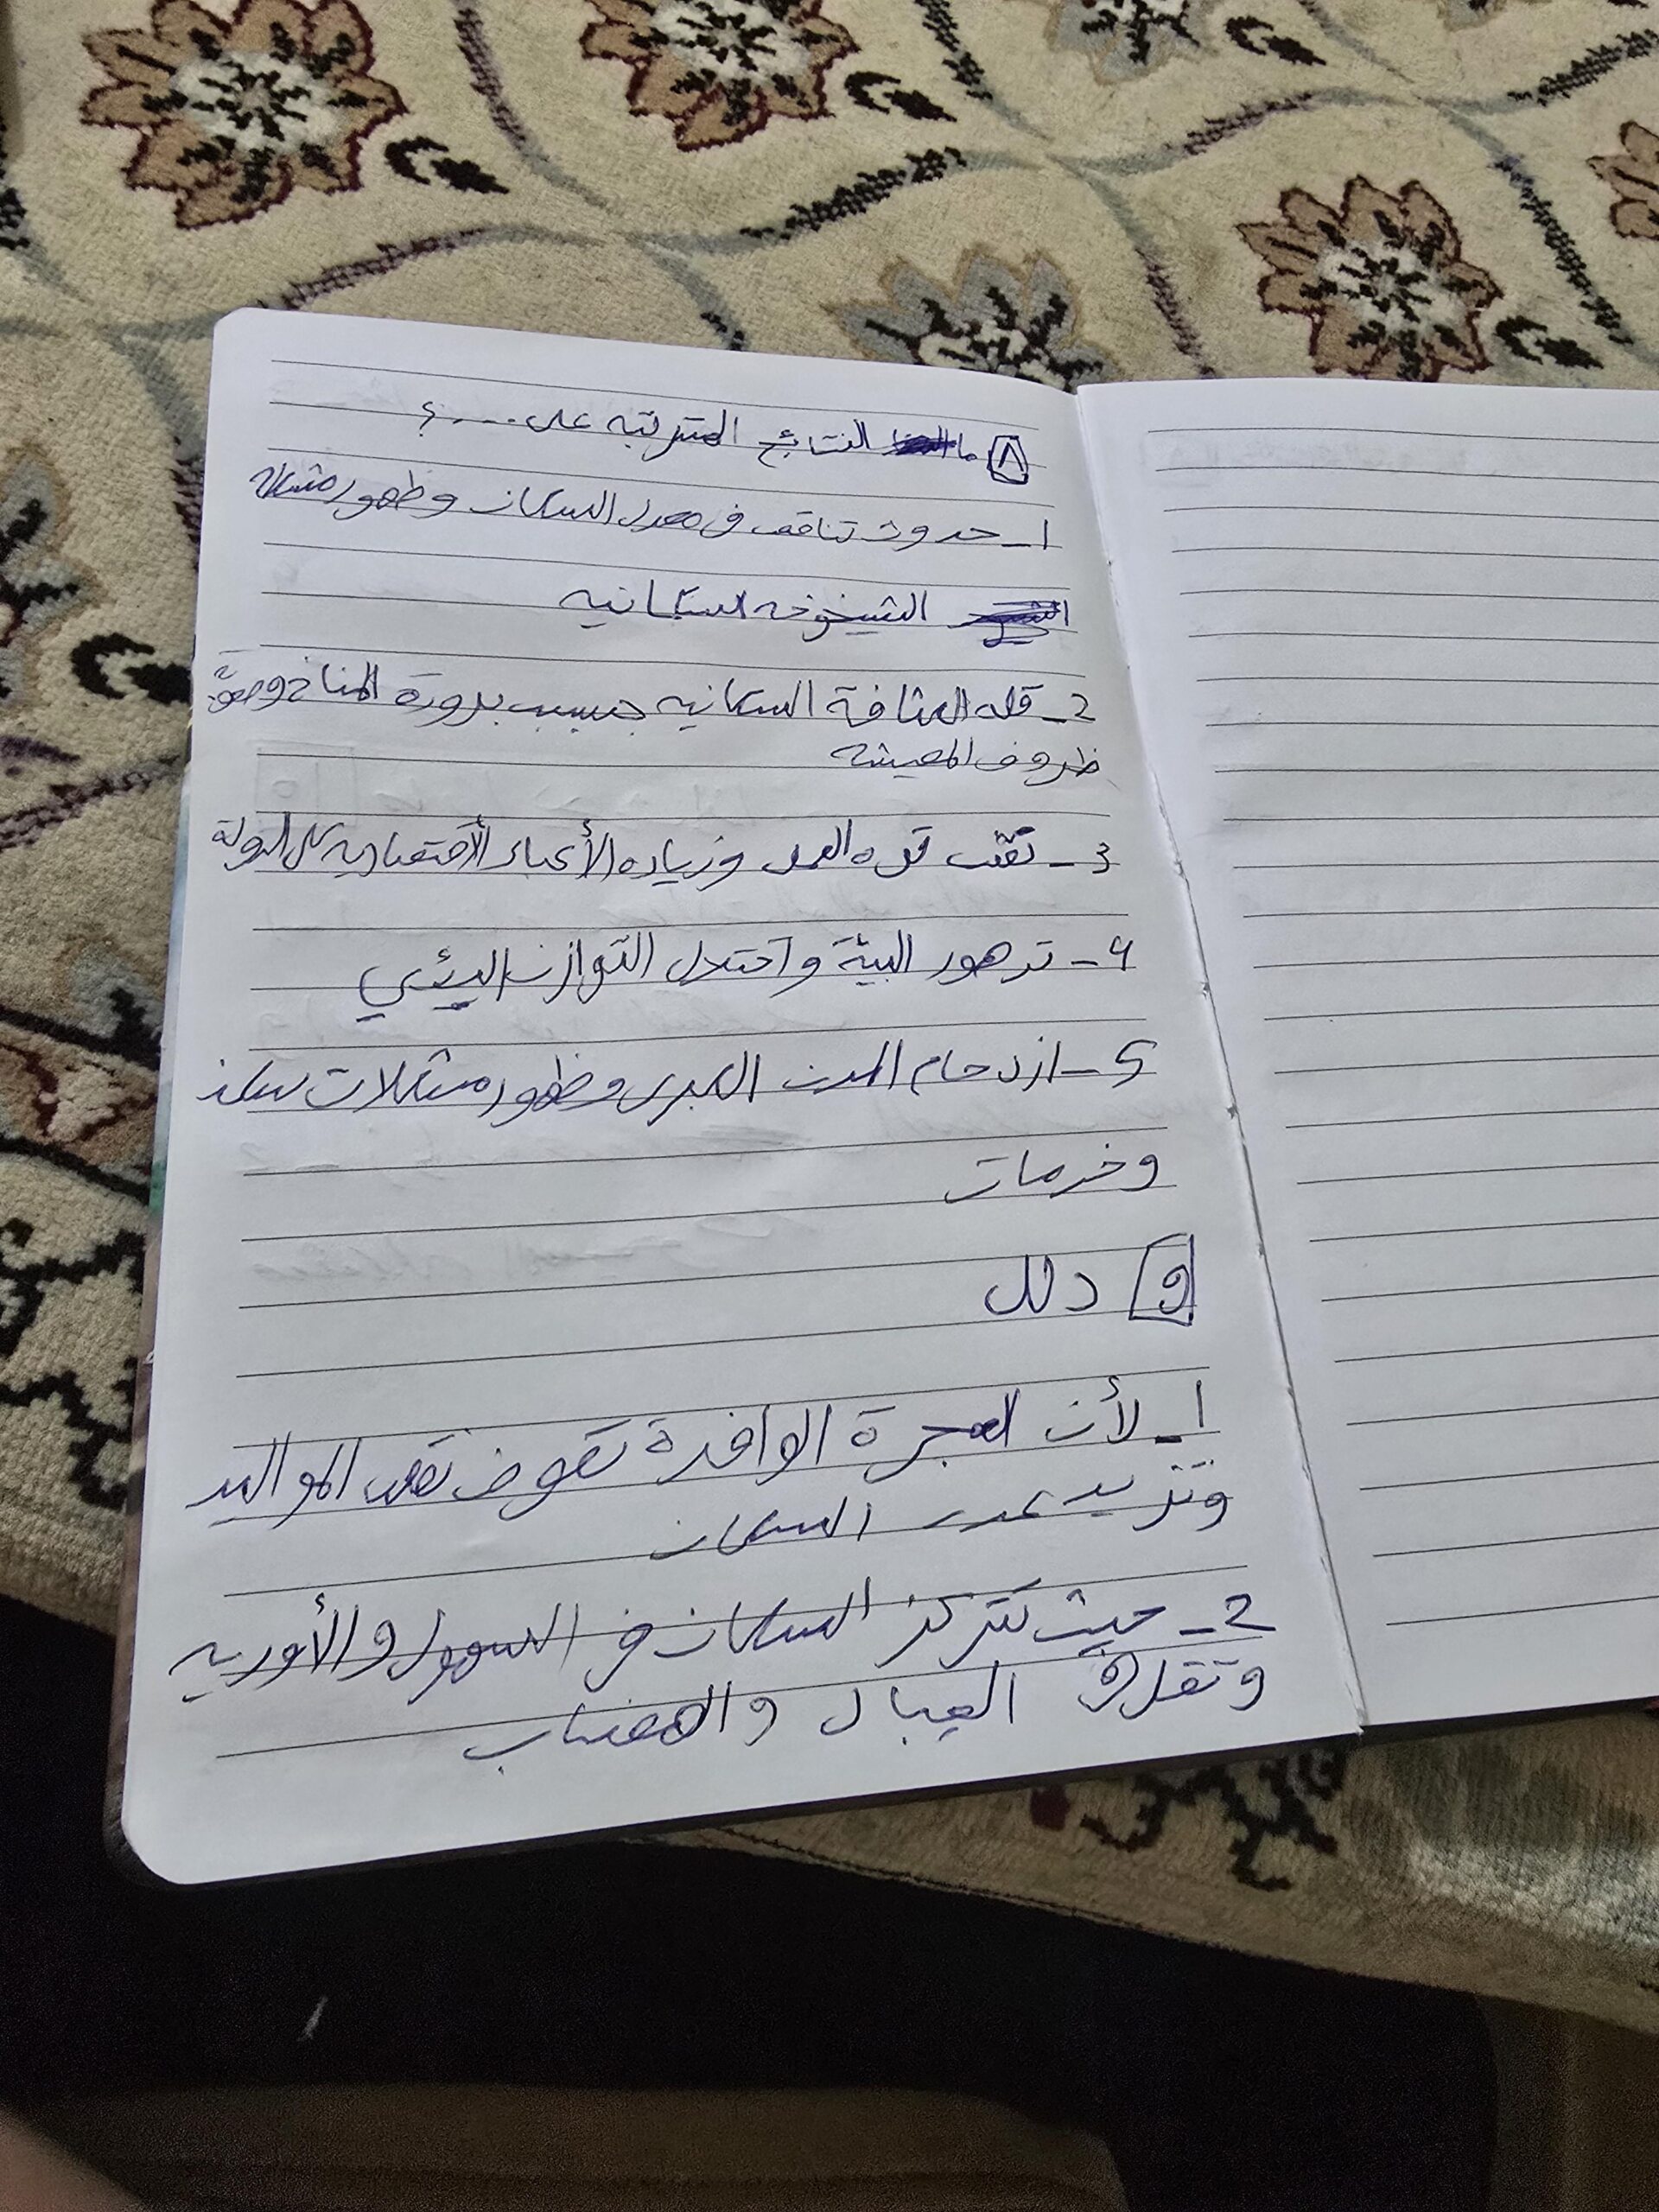 ٨ ما النتائج المترتبه على ....؟
1_ حدوث تناقص في معدل السكان وظهور مشكله
الشيخوخه السكانيه
2_ قله الكثافة السكانيه بسبب برودة المناخ وصعوبة
ظروف المعيشه
3_ نقص قوه العمل وزياده الأعباء الأقتصاديه على الدولة
4_ تدهور البيئة واختلال التوازن البيئي
5_ ازدحام المدن الكبرى وظهور مشكلات سكن
وخدمات
9 دلل
1_ لأن الهجرة الوافدة تعوض نقص المواليد
وتزيد عدد السكان
2_ حيث تتركز السكان في السهول والأوديه
وتقل في الجبال والهضاب